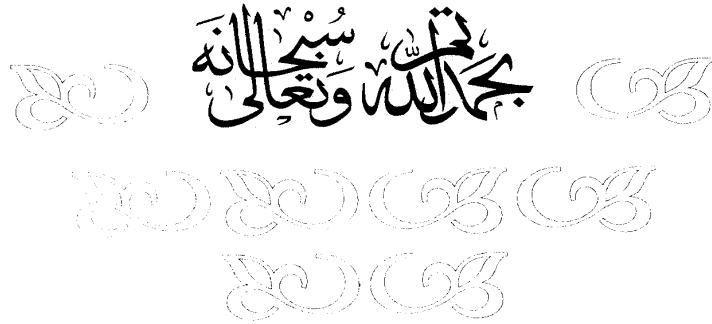 تم بحمد الله سُبْحَانَه وَتعالى